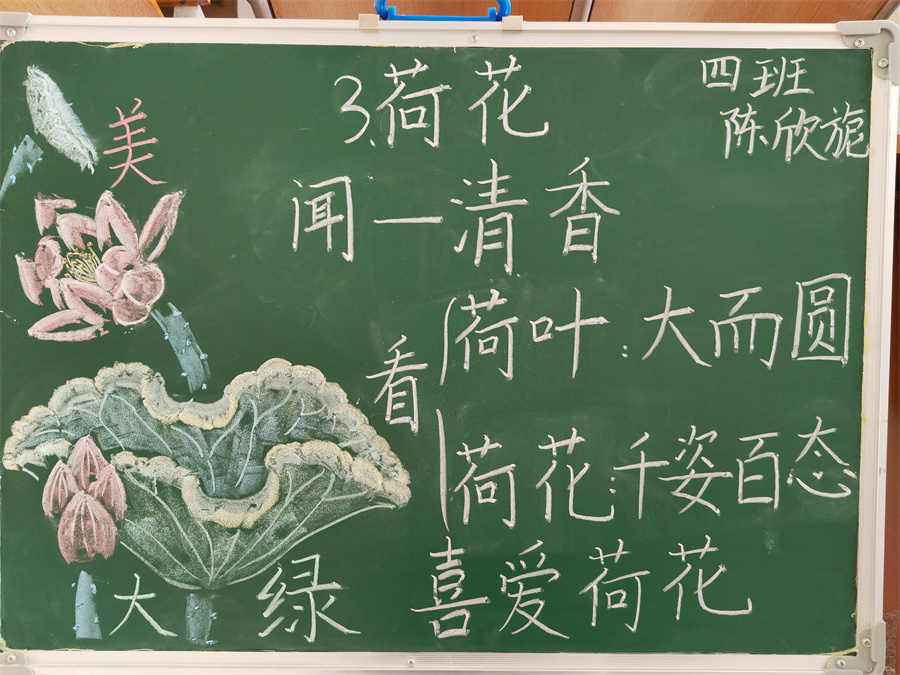 3.荷花
四班
陈欣旎
美
闻—清香
看
荷叶:大而圆
荷花:千姿百态
大 绿
喜爱荷花